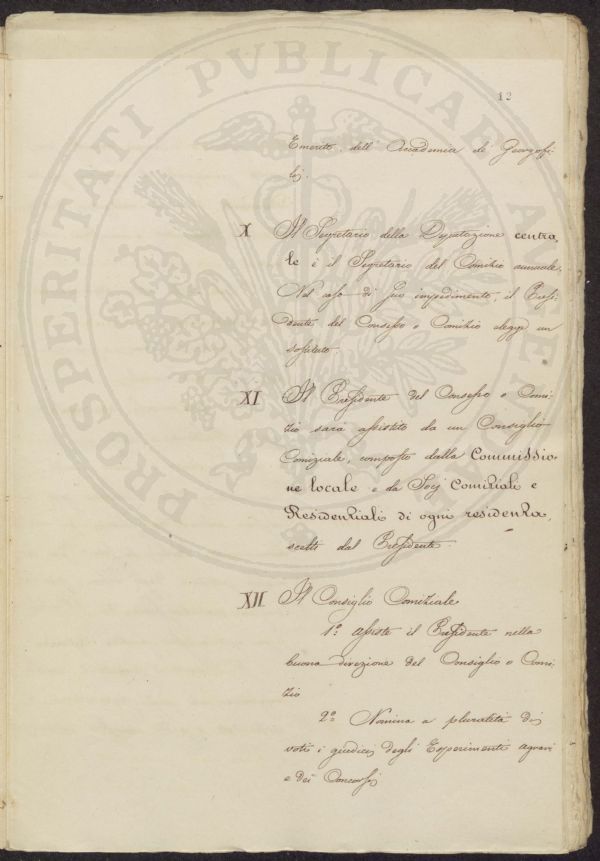 PROSPERITATI PVBLICAE
12
Emerito dell' Accademia de Georgofi-
li.
X Il Segretario della Deputazione centra-
le è il Segretario del Comizio annuale.
Nel caso di suo impedimento, il Presi-
dente del Consesso o Comizio elegge un
sostituto.
XI Il Presidente del Consesso o Comi-
zio sarà assistito da un Consiglio
Comiziale, composto dalla Commissio-
ne locale e da Socj Comiziali e
Residenziali di ogni residenza,
scelti dal Presidente.
XII Il Consiglio Comiziale
1º assiste il Presidente nella
buona direzione del Consiglio o Comi-
zio
2º Nomina a pluralità di
voti i giudici degli Esperimenti agrari
e dei Concorsi